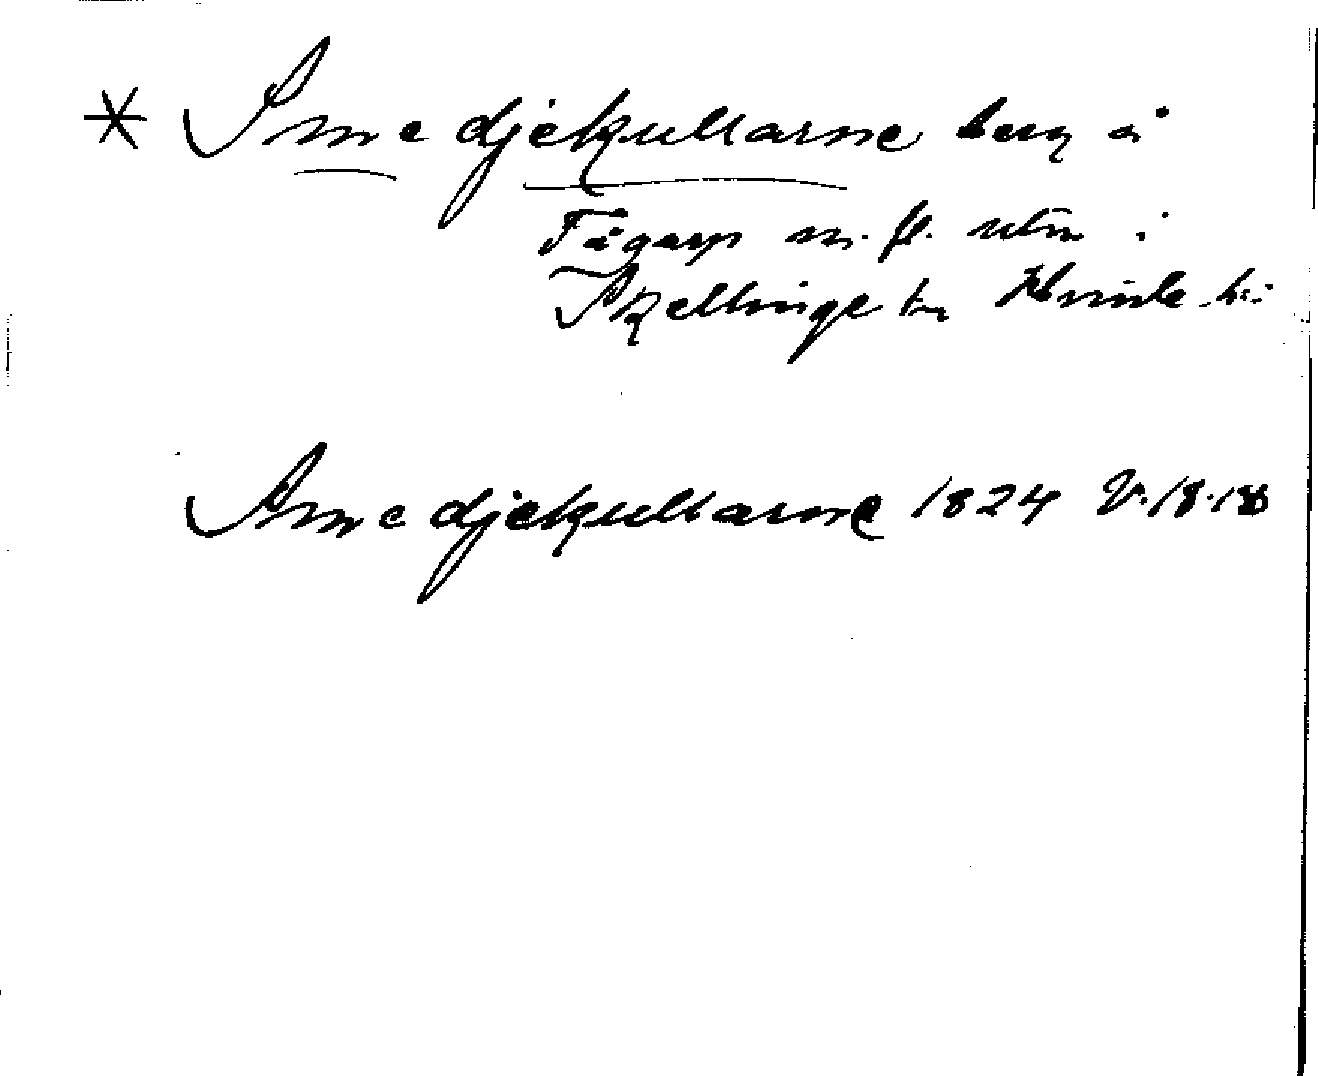 * Smedjekullarne berg å
Fågarp m. fl. utm i
Skällinge sn Himle hd
Smedjekullarne 1824 V. 18.